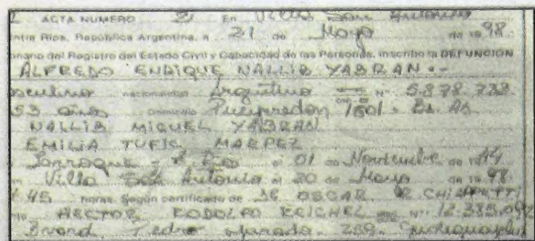 ACTA NUMERO 21 En Villa San Antonio
ntre Rios, Republica Argentina, a 21 de Mayo de 1998.
onario del Registro del Estado Civil y Capacidad de las Personas, inscribo la DEFUNCION
ALFREDO ENRIQUE NALLIB YABRAN.-
sculino nacionalidad Argentino N° 5.878.738
53 años Pueyrredon 1501. Bs. As.
NALLIB MIGUEL YABRAN
EMILIA TUFIC MARPEZ
Larroque - E. Rios el 01 de Noviembre de 1944
Villa San Antonio el 20 de Mayo de 1998.
45 horas. Según certificado de OSCAR R. CHIAPPETTI
HECTOR RODOLFO REICHEL N° 12.385.092
Pedro 259.